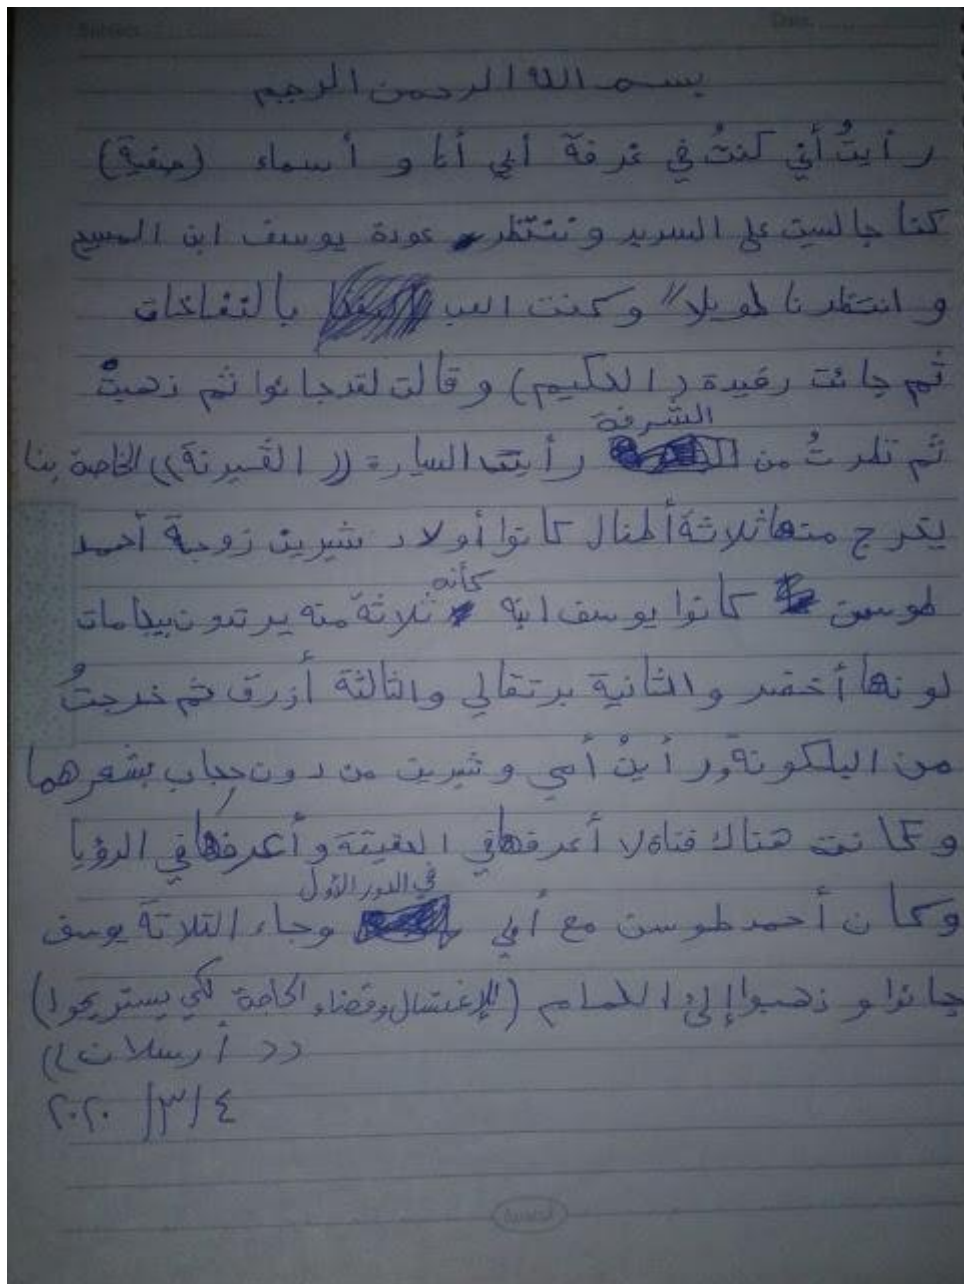 بسم الله الرحمن الرحيم
رأيتُ أني كنتُ في غرفة أبي أنا و أسماء (صفية)
كنا جالسين على السرير و ننتظر عودة يوسف ابن المسيح
و انتظرنا طويلا" وكنت ألعب بالنفاخات
ثم جائت رفيدة (الحكيم) و قالت لقد جائوا ثم ذهبتْ
الشرفة
ثم نظرتُ من رأيت السيارة ((القيرنة)) الخاصة بنا
يخرج منها ثلاثة أطفال كانوا أولاد شيرين زوجة أحمد
كأنه
طوسن كانوا يوسف ابنه ثلاثة منه يرتدون بيجامات
لونها أخضر و الثانية برتقالي والثالثة أزرق ثم خرجتُ
من البلكونة ورأيتُ أمي و شيرين من دون حجاب بشعرهما
وكانت هناك فتاة لا أعرفها في الحقيقة و أعرفها في الرؤيا
في الدور الأول
وكان أحمد طوسن مع أبي وجاء الثلاثة يوسف
جائوا و ذهبوا إلى الحمام (للإغتسال وقضاء الحاجة لكي يستريحوا)
((أرسلان))
٤/٣/٢٠٢٠